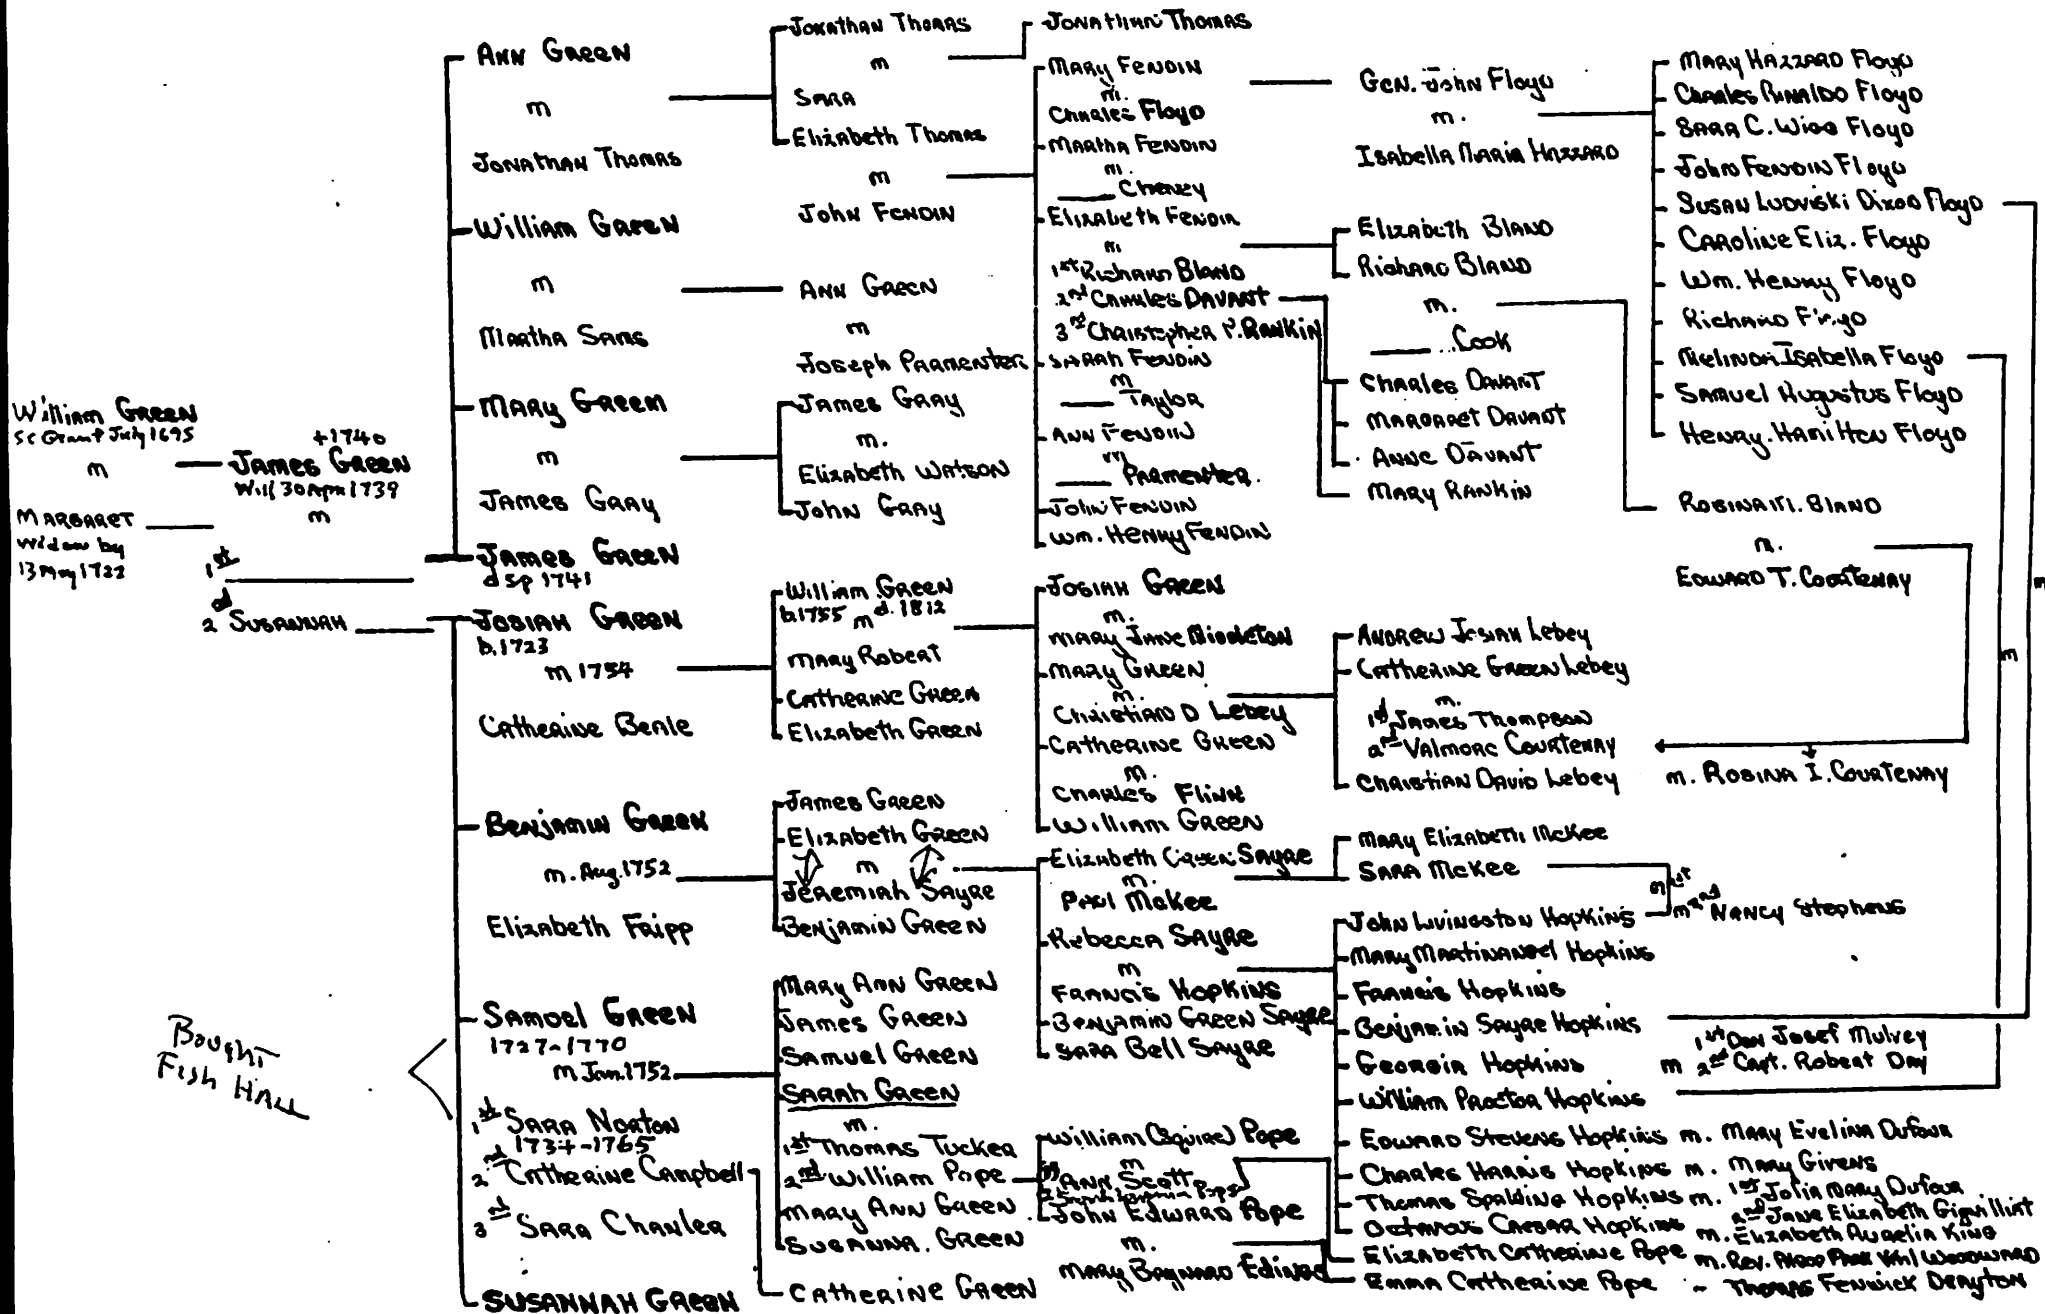 William Green
SC Grant July 1695
m
Margaret
widow by
13 May 1722
+1740
James Green
Will 30 Apr 1739
m
1st
2nd Susannah
Ann Green
m
Jonathan Thomas
William Green
m
Martha Sams
Mary Green
m
James Gray
James Green
d sp 1741
Josiah Green
b. 1723
m 1754
Catherine Beale
Benjamin Green
m. Aug. 1752
Elizabeth Fripp
Samuel Green
1727-1770
m Jan. 1752
1st Sara Norton
1734-1765
2nd Catherine Campbell
3rd Sara Chanler
Susannah Green
Bought
Fish Hall
Jonathan Thomas
m
Sara
Elizabeth Thomas
m
John Fendin
Ann Green
m
Joseph Parmenter
James Gray
m.
Elizabeth Watson
John Gray
William Green
b. 1755 m d. 1812
Mary Robert
Catherine Green
Elizabeth Green
James Green
Elizabeth Green
m
Jeremiah Sayre
Benjamin Green
Mary Ann Green
James Green
Samuel Green
Sarah Green
m.
1st Thomas Tucker
2nd William Pope
Mary Ann Green
Susanna Green
Catherine Green
Jonathan Thomas
Mary Fendin
m.
Charles Floyd
Martha Fendin
m.
Cheney
Elizabeth Fendin
m
1st Richard Bland
2nd Charles Davant
3rd Christopher P. Rankin
Sarah Fendin
m
Taylor
Ann Fendin
m
Parmenter
John Fendin
Wm. Henry Fendin
Josiah Green
m.
Mary Jane Middleton
Mary Green
m.
Christian D Lebey
Catherine Green
m.
Charles Flinn
William Green
Elizabeth Green Sayre
m.
Paul McKee
Rebecca Sayre
m
Francis Hopkins
Benjamin Green Sayre
Sara Bell Sayre
William (Squire) Pope
m
Ann Scott
John Edward Pope
m.
Mary Baynard Edings
Gen. John Floyd
m.
Isabella Maria Hazzard
Elizabeth Bland
Richard Bland
m.
Cook
Charles Davant
Margaret Davant
Anne Davant
Mary Rankin
Andrew Josiah Lebey
Catherine Green Lebey
m.
1st James Thompson
2nd Valmore Courtenay
Christian David Lebey
Mary Elizabeth McKee
Sara McKee
m 1st
John Livingston Hopkins m 2nd Nancy Stephens
Mary Martinangel Hopkins
Francis Hopkins
Benjamin Sayre Hopkins
Georgia Hopkins m 1st Don Josef Mulvey
2nd Capt. Robert Day
William Proctor Hopkins
Edward Stevens Hopkins m. Mary Evelina Dufour
Charles Harris Hopkins m. Mary Givens
Thomas Spalding Hopkins m. 1st Julia Mary Dufour
2nd Jane Elizabeth Gignilliat
Octavous Caesar Hopkins m. Elizabeth Aurelia King
Elizabeth Catherine Pope m. Rev. Woodward
Emma Catherine Pope - Thomas Fenwick Drayton
Mary Hazzard Floyd
Charles Rinaldo Floyd
Sara C. Wigg Floyd
John Fendin Floyd
Susan Ludviski Dixon Floyd
Caroline Eliz. Floyd
Wm. Henry Floyd
Richard Floyd
Melinda Isabella Floyd
Samuel Augustus Floyd
Henry Hamilton Floyd
Robina M. Bland
m.
Edward T. Courtenay
m. Rosina I. Courtenay
m
m